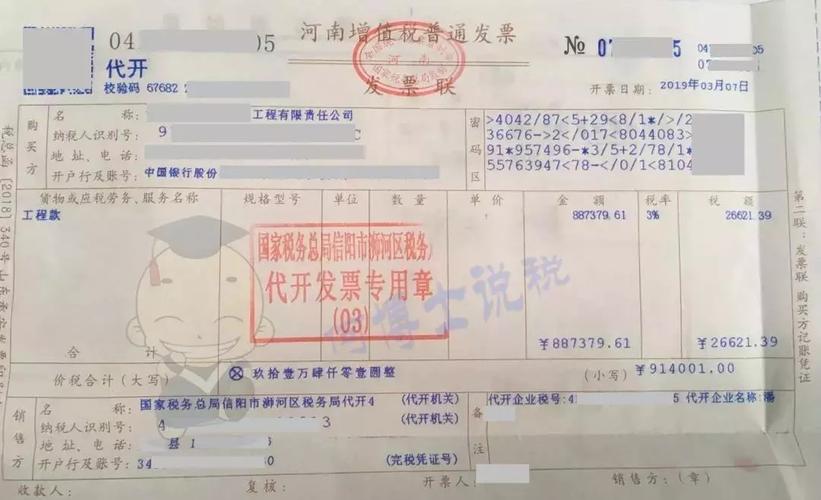 04 05 河南增值税普通发票 № 07 5 04 05
代开 07
校验码 67682 2 发票联 开票日期: 2019年03月07日
购买方
名 称: 工程有限责任公司
纳税人识别号: 9
地 址、电 话:
开户行及账号: 中国银行股份
密码区
>4042/87<5+29<8/1*/>/2
36676->2</017<8044083>
91*957496-*3/5+2/78/1*
55763947<78-</0/1<8104
货物或应税劳务、服务名称 规格型号 单位 数 量 单 价 金 额 税率 税 额
工程款 887379.61 3% 26621.39
国家税务总局信阳市浉河区税务
代开发票专用章
(03)
博士说税
合 计 ¥887379.61 ¥26621.39
价税合计(大写) ⊗玖拾壹万肆仟零壹圆整 (小写) ¥914001.00
销售方
名 称: 国家税务总局信阳市浉河区税务局代开4 (代开机关)
纳税人识别号: A 3 (代开机关)
地 址、电 话: 县 1
开户行及账号: 34 0 (完税凭证号)
备注
代开企业税号:4 5 代开企业名称:潘
收款人: 复核: 开票人: 销售方:(章)
第二联:发票联 购买方记账凭证